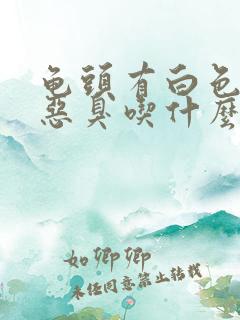 龟头有白色
恶臭喫什麽
如卿卿
未经同意禁止转载